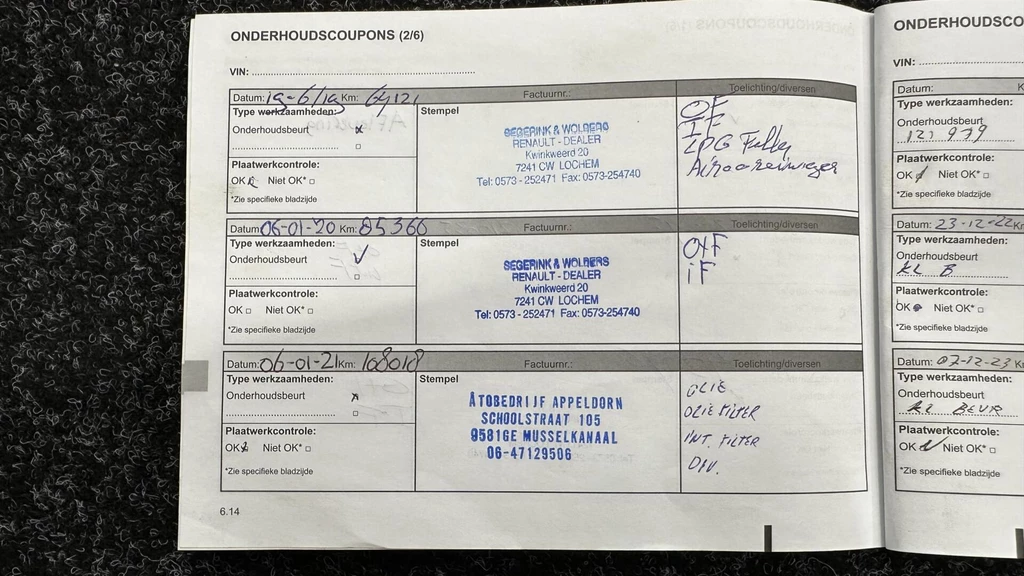 ONDERHOUDSCOUPONS (2/6)
VIN:
Datum: 19-6/19 Km: 64121 Factuurnr.: Toelichting/diversen
Type werkzaamheden:
Onderhoudsbeurt x
Plaatwerkcontrole:
OK Niet OK*
*Zie specifieke bladzijde
Stempel
SEGERINK & WOLBERS
RENAULT - DEALER
Kwinkweerd 20
7241 CW LOCHEM
Tel: 0573 - 252471 Fax: 0573-254740
OF
IF
LPG
Datum: 06-01-20 Km: 85366 Factuurnr.: Toelichting/diversen
Type werkzaamheden:
Onderhoudsbeurt ✓
Plaatwerkcontrole:
OK Niet OK*
*Zie specifieke bladzijde
Stempel
SEGERINK & WOLBERS
RENAULT - DEALER
Kwinkweerd 20
7241 CW LOCHEM
Tel: 0573 - 252471 Fax: 0573-254740
O+F
iF
Datum: 06-01-21 Km: 108018 Factuurnr.: Toelichting/diversen
Type werkzaamheden:
Onderhoudsbeurt x
Plaatwerkcontrole:
OK Niet OK*
*Zie specifieke bladzijde
Stempel
ÅTOBEDRIJF APPELDORN
SCHOOLSTRAAT 105
9581GE MUSSELKANAAL
06-47129506
OLIE
OLIE FILTER
INT. FILTER
DIV.
6.14
ONDERHOUDSCO
VIN:
Datum:
Type werkzaamheden:
Onderhoudsbeurt
121979
Plaatwerkcontrole:
OK Niet OK*
*Zie specifieke bladzijde
Datum: 23-12-22 Km
Type werkzaamheden:
Onderhoudsbeurt
KL B
Plaatwerkcontrole:
OK Niet OK*
*Zie specifieke bladzijde
Datum: 07-12-23 Km
Type werkzaamheden:
Onderhoudsbeurt
KL BEUR
Plaatwerkcontrole:
OK Niet OK*
*Zie specifieke bladzijde